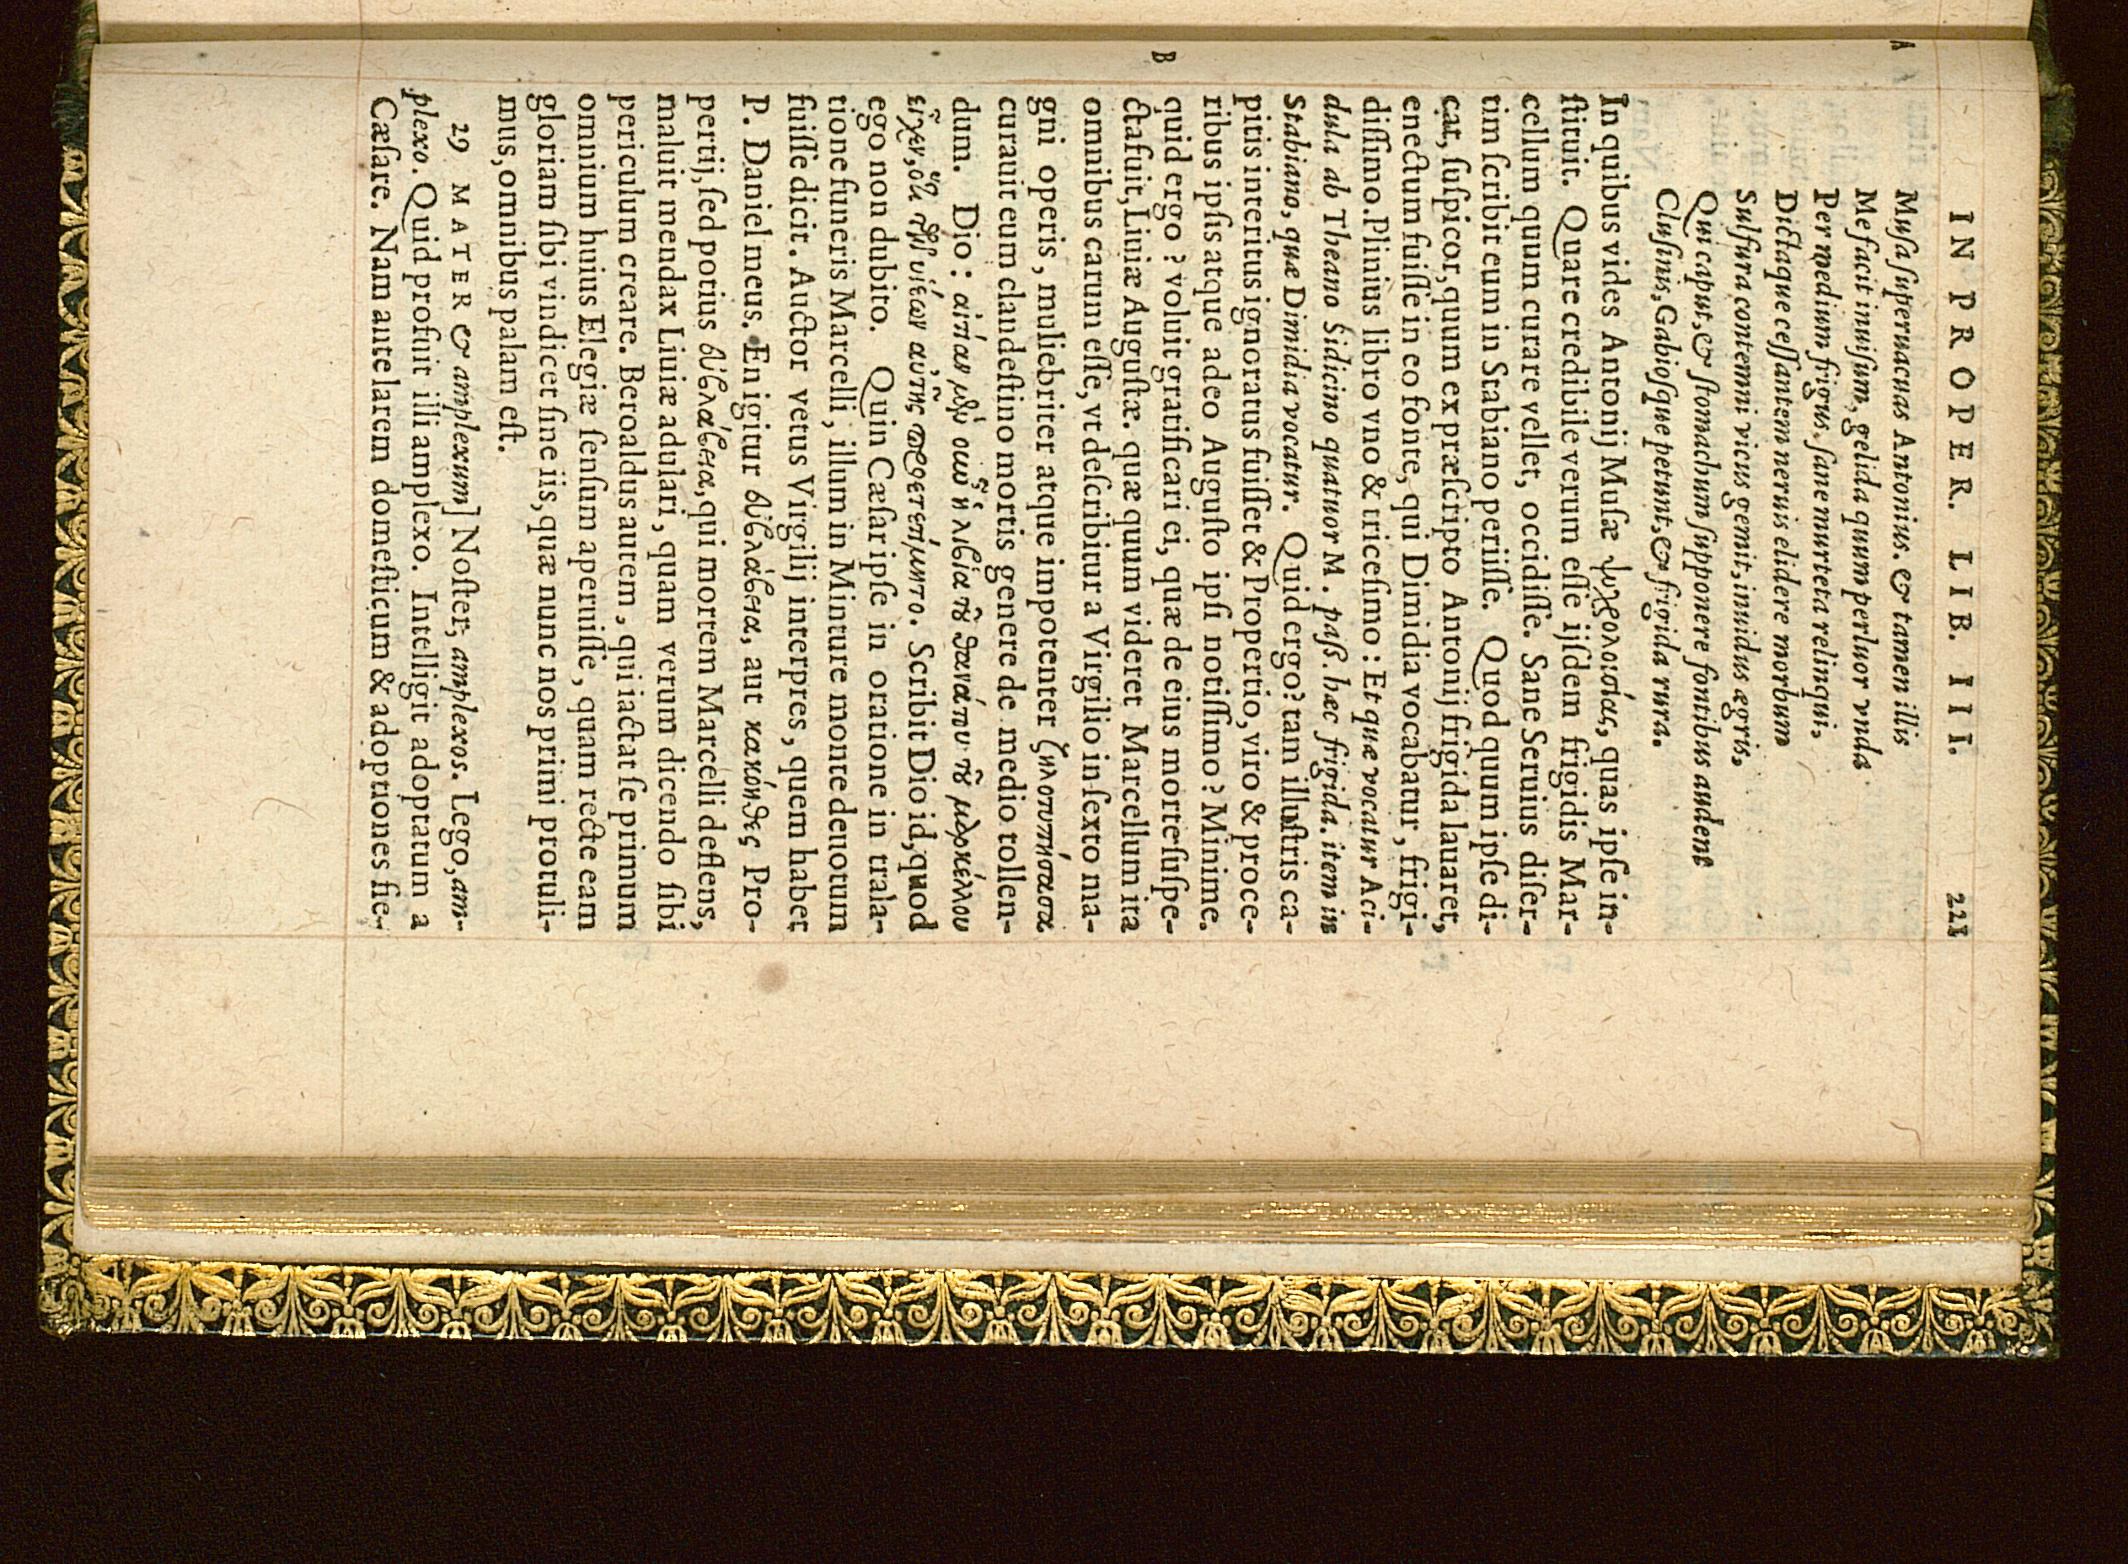 IN PROPER. LIB. III. 221
A
Muſa ſuperuacuas Antonius. & tamen illis
Me facit inuiſum, gelida quum perluor vnda
Per medium frigus. ſane murteta relinqui,
Dictaque ceſſantem neruis elidere morbum
Sulfura contemni vicus gemit, inuidus ægris,
Qui caput, & ſtomachum ſupponere fontibus audent
Cluſinis, Gabioſque petunt, & frigida rura.
In quibus vides Antonij Muſæ ψυχρολουσίας, quas ipſe in-
ſtituit. Quare credibile verum eſſe ijſdem frigidis Mar-
cellum quum curare vellet, occidiſſe. Sane Seruius diſer-
tim ſcribit eum in Stabiano periiſſe. Quod quum ipſe di-
cat, ſuſpicor, quum ex præſcripto Antonij frigida lauaret,
enectum fuiſſe in eo fonte, qui Dimidia vocabatur, frigi-
diſſimo. Plinius libro vno & triceſimo: Et quæ vocatur Aci-
dula ab Theano Sidicino quatuor M. paſſ. hæc frigida. item in
Stabiano, quæ Dimidia vocatur. Quid ergo? tam illuſtris ca-
pitis interitus ignoratus fuiſſet & Propertio, viro & proce-
ribus ipſis atque adeo Auguſto ipſi notiſſimo? Minime.
B
quid ergo? voluit gratificari ei, quæ de eius morte ſuſpe-
cta fuit, Liuiæ Auguſtæ. quæ quum videret Marcellum ita
omnibus carum eſſe, vt deſcribitur a Virgilio in ſexto ma-
gni operis, muliebriter atque impotenter ζηλοτυπήσασα
curauit eum clandeſtino mortis genere de medio tollen-
dum. Dio: αἰτίαν μὲν οὖν ἡ λιβία τοῦ θανάτου τοῦ μαρκέλλου
εἶχεν, ὅτι τῶν υἱέων αὐτῆς προετετίμητο. Scribit Dio id, quod
ego non dubito. Quin Cæſar ipſe in oratione in trala-
tione funeris Marcelli, illum in Minture monte deuotum
fuiſſe dicit. Auctor vetus Virgilij interpres, quem habet
P. Daniel meus. En igitur εὐλάβεια, aut κακόηθες Pro-
pertij, ſed potius εὐλάβεια, qui mortem Marcelli deflens,
maluit mendax Liuiæ adulari, quam verum dicendo ſibi
periculum creare. Beroaldus autem, qui iactat ſe primum
omnium huius Elegiæ ſenſum aperuiſſe, quam recte eam
gloriam ſibi vindicet ſine iis, quæ nunc nos primi protuli-
mus, omnibus palam eſt.
29 MATER & amplexum] Noſter, amplexos. Lego, am-
plexo. Quid profuit illi amplexo. Intelligit adoptatum a
Cæſare. Nam ante larem domeſticum & adoptiones fie-